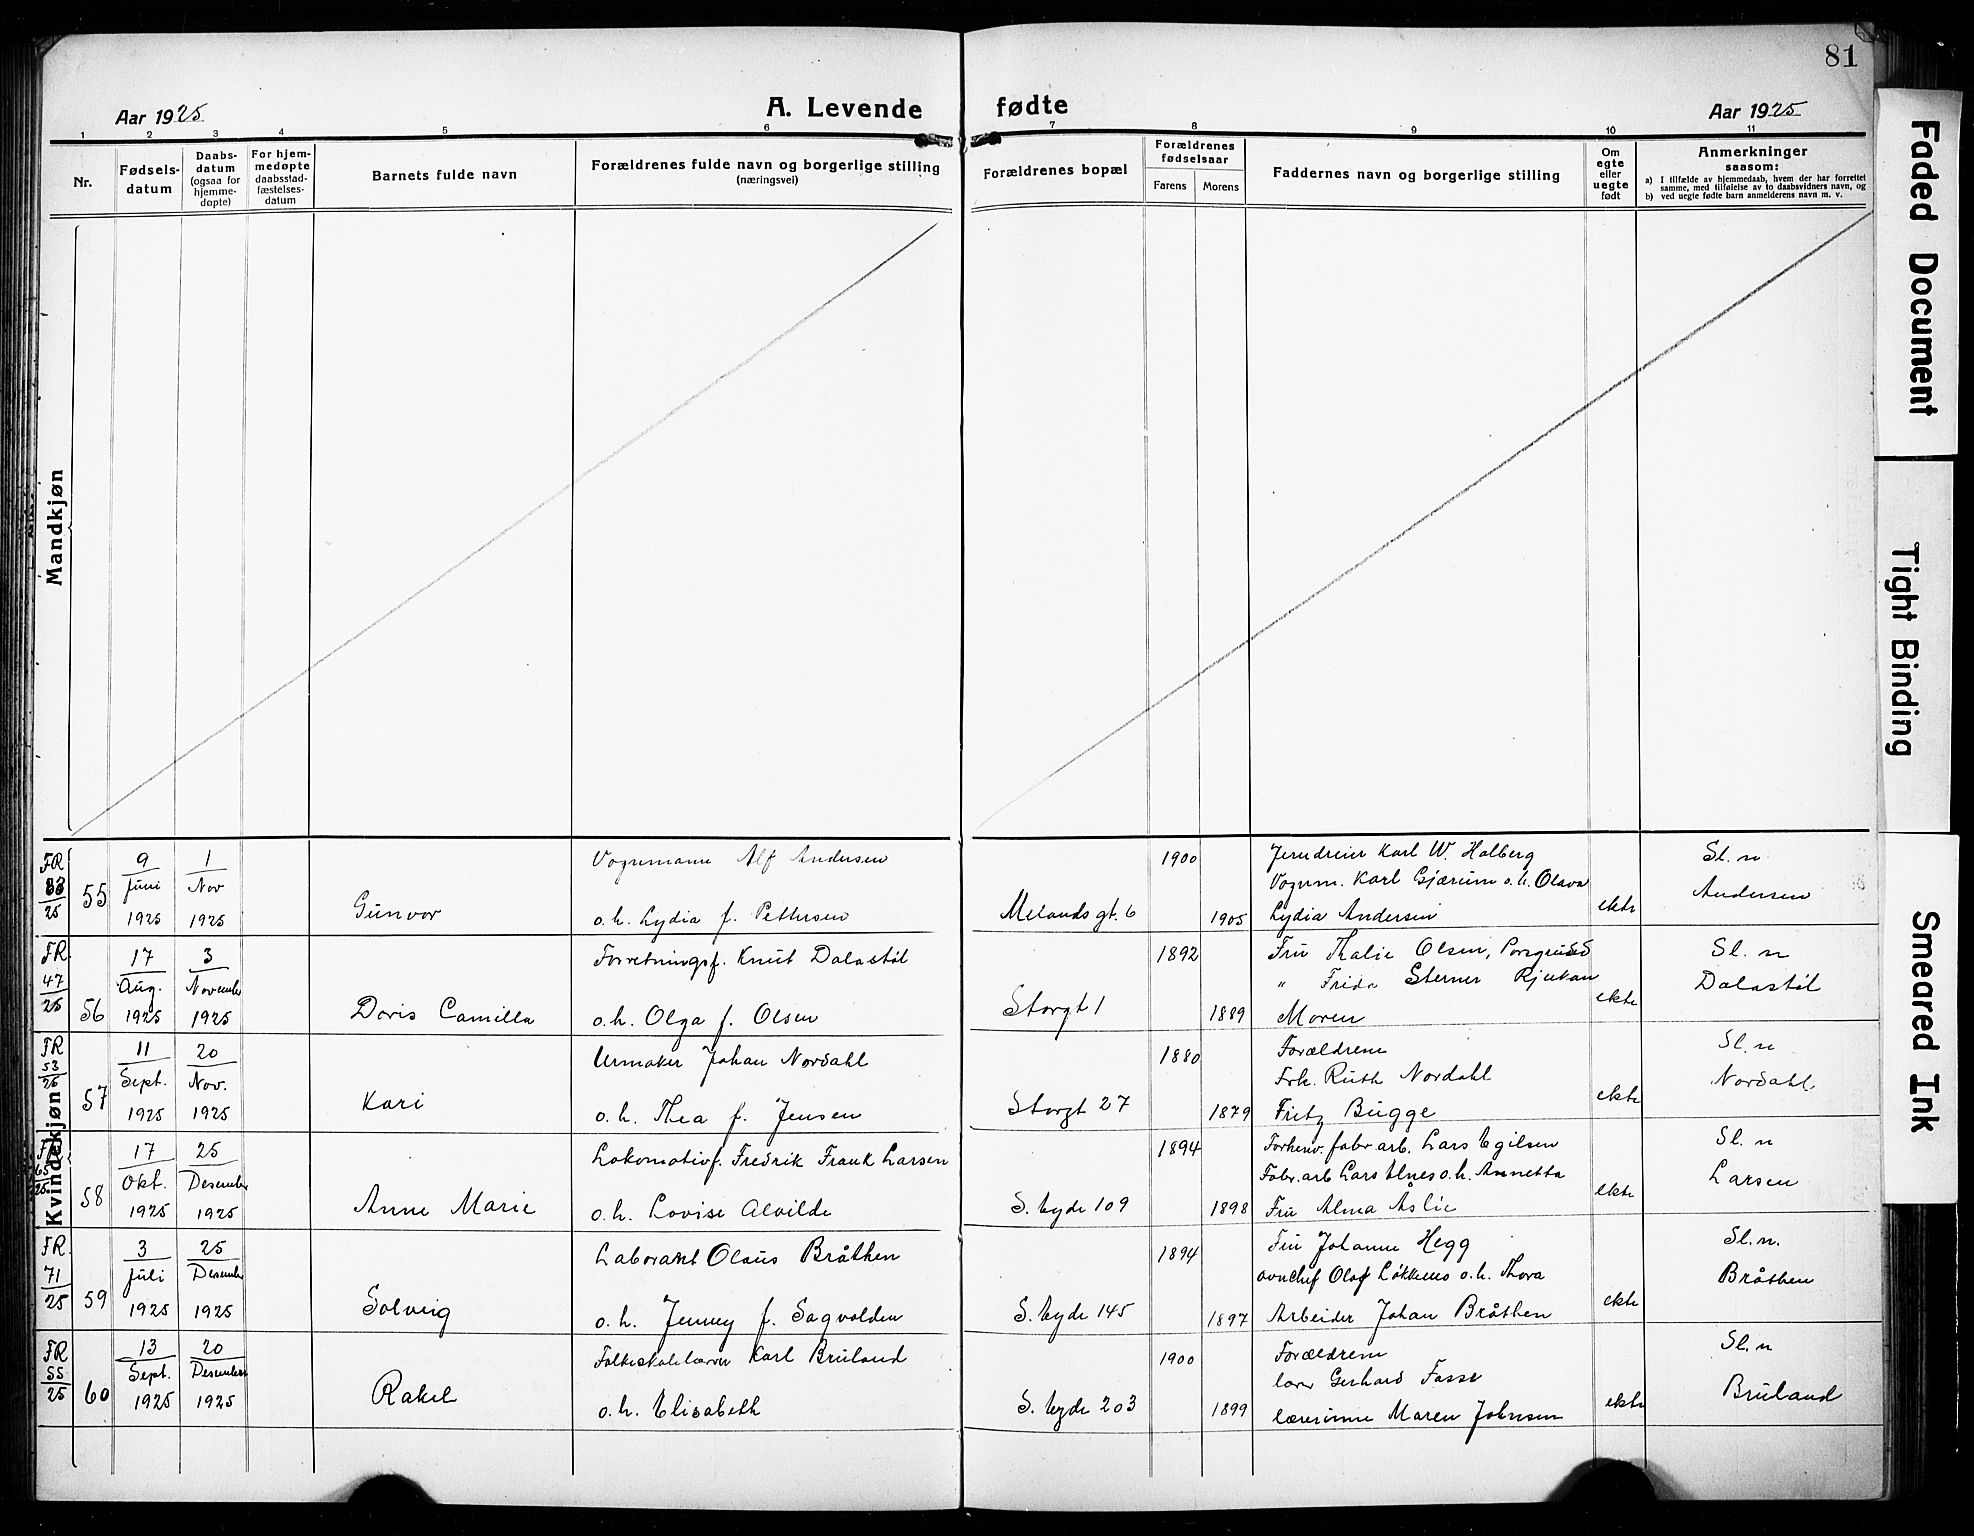 81
Aar 1925
A. Levende fødte
Aar 1925
1 2 3 4 5 6 7 8 9 10 11
Nr.
Fødsels-
datum
Daabs-
datum
(ogsaa for
hjemme-
døpte)
For hjem-
medøpte
daabsstad-
fæstelses-
datum
Barnets fulde navn
Forældrenes fulde navn og borgerlige stilling
(næringsvei)
Forældrenes bopæl
Forældrenes
fødselsaar
Farens Morens
Faddernes navn og borgerlige stilling
Om
egte
eller
uegte
født
Anmerkninger
saasom:
a) I tilfælde av hjemmedaab, hvem der har forrettet
samme, med tilføielse av to daabsvidners navn, og
b) ved uegte fødte barn anmelderens navn m. v.
Mandkjøn
Kvindekjøn
FR 25
55
9 Juni 1925
1 Nov 1925
Gunvor
Vognmann Alf Andersen
o. h. Lydia f. Pettersen
Melandsgt. 6
1900
1905
Jerndreier Karl W. Halberg
Vognm. Karl Gjærum o.h. Olava
Lydia Andersen
ekte
Sl. n
Andersen
FR 47 25
56
17 Aug. 1925
3 November 1925
Doris Camilla
Forretningsf. Knut Dalastøl
o. h. Olga f. Olsen
Storgt 1
1892
1889
Fru Thalie Olsen, Porsgrund
" Frida Sterner Rjukan
Moren
ekte
Sl. n
Dalastøl
FR 53 25
57
11 Sept. 1925
20 Nov. 1925
Kari
Urmaker Johan Nordahl
o. h. Thea f. Jensen
Storgt 27
1880
1879
Forældrene
Frk. Ruth Nordahl
Fritz Bugge
ekte
Sl. n
Nordahl
FR 65 25
58
17 Okt. 1925
25 Desember 1925
Anne Marie
Lokomotivf. Fredrik Frank Larsen
o. h. Lovise Alvilde
S. byde 109
1894
1898
Forhenv. fabr arb. Lars Egilsen
Fabr. arb Lars Ulnes o.h. Annetta
Fru Alma Åslie
ekte
Sl. n
Larsen
FR. 71 25
59
3 Juli 1925
25 Desember 1925
Solveig
Laborant Olaus Bråthen
o. h. Jenny f. Sagvolden
S. byde 145
1894
1897
Fru Johanne Hegg
ovnchef Olaf Løkkens o.h. Thora
Arbeider Johan Bråthen
ekte
Sl. n.
Bråthen
FR 55 25
60
13 Sept. 1925
20 Desember 1925
Rakel
Folkeskolelærer Karl Bruland
o. h. Elisabeth
S. byde 203
1900
1899
Forældrene
lærer Gerhard Fosse
lærerinne Maren Johnsen
ekte
Sl. n
Bruland
Faded Document
Tight Binding
Smeared Ink